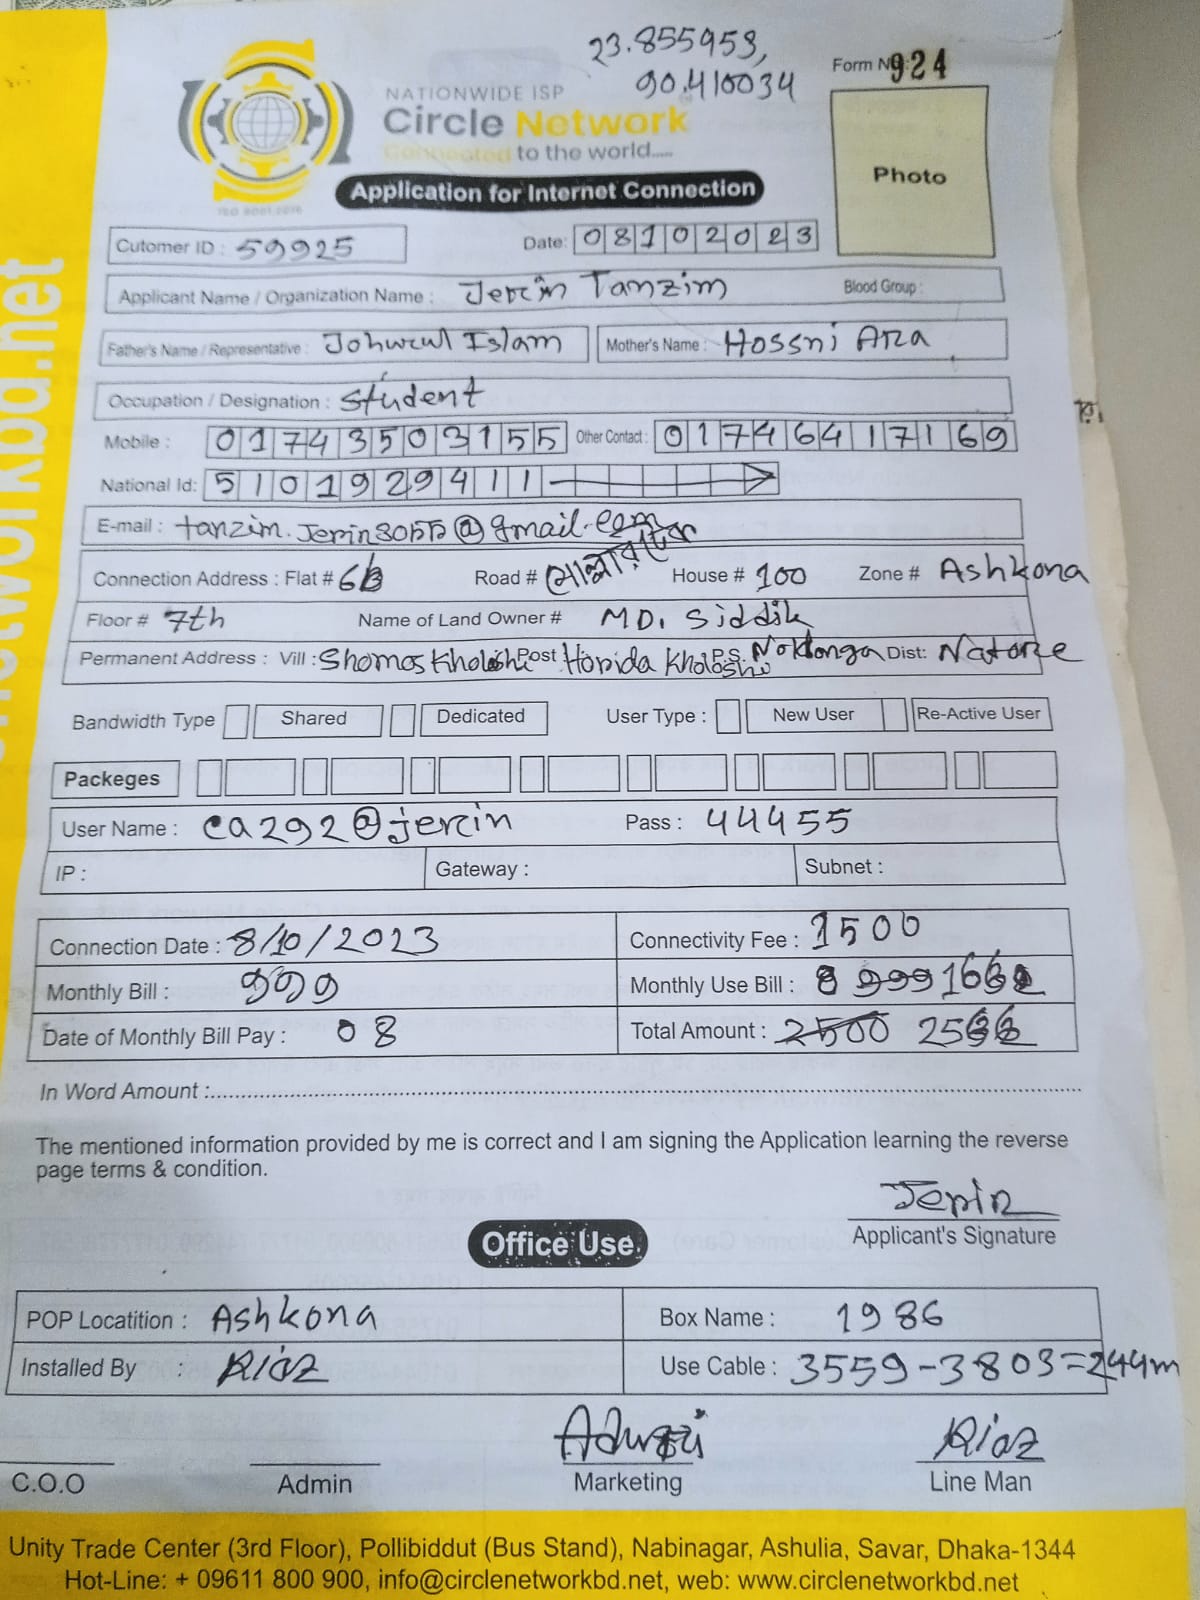 23.855953,
90.410034
Form No 924
NATIONWIDE ISP
Circle Network
Connected to the world.....
ISO 9001:2015
Application for Internet Connection
Photo
Cutomer ID : 59925 Date: 08102023
Applicant Name / Organization Name : Jerin Tanzim Blood Group :
Father's Name / Representative : Johurul Islam Mother's Name : Hossni Ara
Occupation / Designation : Student
Mobile : 01743503155 Other Contact : 01746417169
National Id: 5101929411
E-mail : tanzim.Jerin3055@gmail.com
Connection Address : Flat # 6B Road # House # 100 Zone # Ashkona
Floor # 7th Name of Land Owner # MD. Siddik
Permanent Address : Vill : Shomos Kholshi Post Horida Kholoshi P.S. Noldanga Dist: Natore
Bandwidth Type Shared Dedicated User Type : New User Re-Active User
Packeges
User Name : ca292@jerin Pass : 44455
IP : Gateway : Subnet :
Connection Date : 8/10/2023 Connectivity Fee : 1500
Monthly Bill : 999 Monthly Use Bill :
Date of Monthly Bill Pay : 08 Total Amount : 2500
In Word Amount :
The mentioned information provided by me is correct and I am signing the Application learning the reverse
page terms & condition.
Jerin
Applicant's Signature
Office Use.
POP Locatition : Ashkona Box Name : 1986
Installed By : Riaz Use Cable : 3559-3803=244m
Riaz
C.O.O Admin Marketing Line Man
Unity Trade Center (3rd Floor), Pollibiddut (Bus Stand), Nabinagar, Ashulia, Savar, Dhaka-1344
Hot-Line: + 09611 800 900, info@circlenetworkbd.net, web: www.circlenetworkbd.net